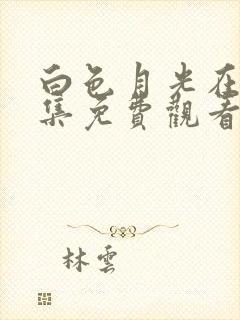 白色月光在
集免費觀看
林雲